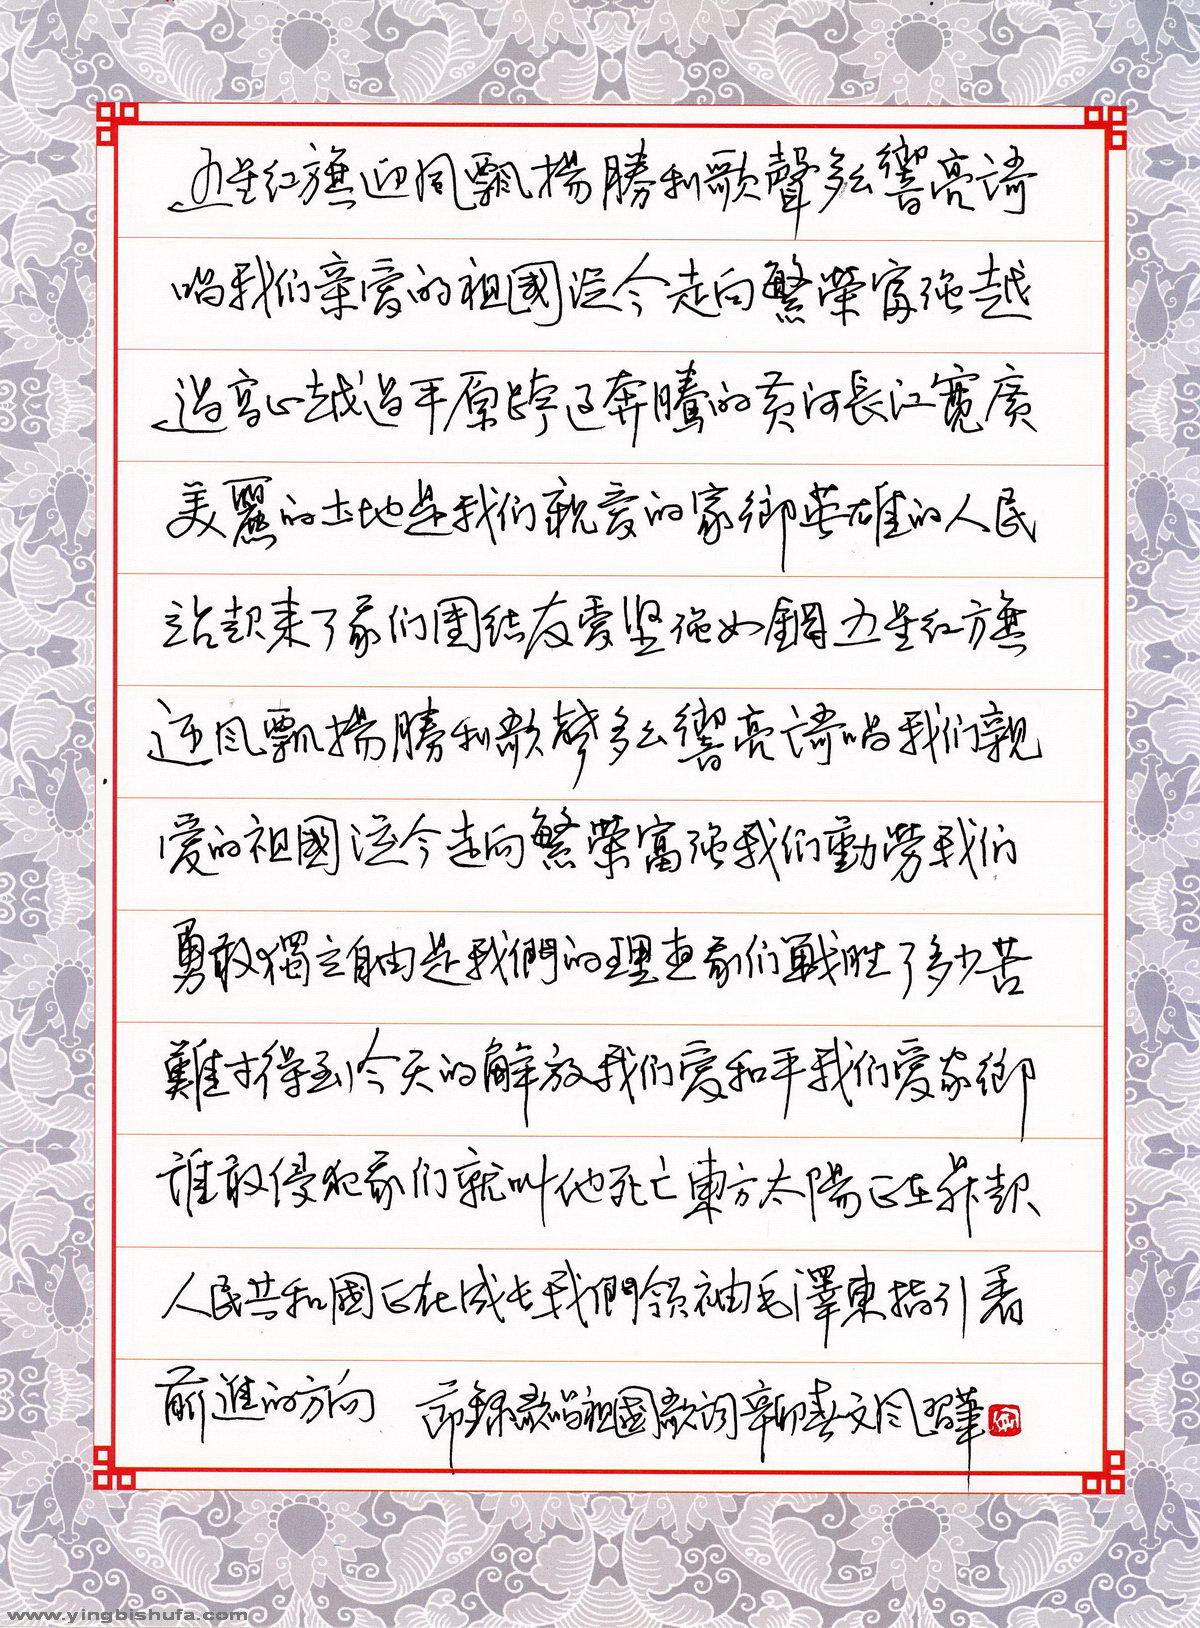 五星红旗迎风飘揚勝利歌聲多么響亮歌
唱我们亲爱的祖國從今走向繁榮富强越
過高山越過平原跨过奔騰的黄河長江寬廣
美麗的土地是我们親爱的家鄉英雄的人民
站起来了我们團结友爱坚强如鋼五星红旗
迎风飄揚勝利歌聲多么響亮歌唱我们親
爱的祖國從今走向繁榮富强我们勤勞我们
勇敢獨立自由是我們的理想我们戰胜了多少苦
難才得到今天的解放我们爱和平我们爱家鄉
誰敢侵犯我们就叫他死亡東方太陽正在升起
人民共和國正在成长我們领袖毛澤東指引着
前進的方向 節録歌唱祖國歌詞辛卯春文
www.yingbishufa.com